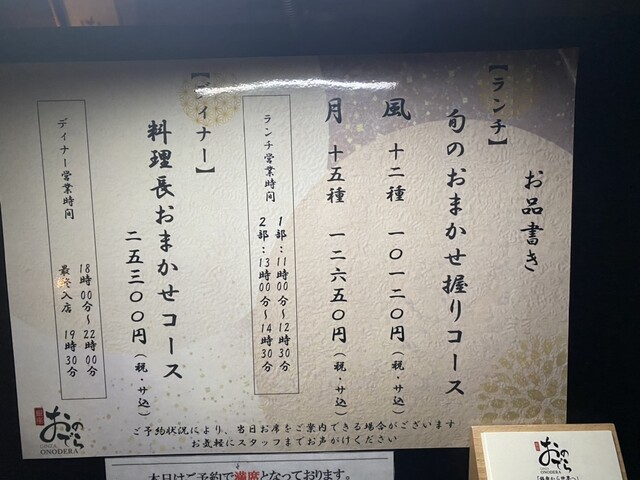 お品書き
【ランチ】
旬のおまかせ握りコース
風 十二種 一〇一二〇円(税・サ込)
月 十五種 一二六五〇円(税・サ込)
ランチ営業時間
1部:11時00分〜12時30分
2部:13時00分〜14時30分
【ディナー】
料理長おまかせコース
二五三〇〇円(税・サ込)
ディナー営業時間
18時00分〜22時00分
最終入店 19時30分
ご予約状況により、当日お席をご案内できる場合がございます
お気軽にスタッフまでお声がけください
おのでら
GINZA
ONODERA
本日はご予約で満席となっております。
おのでら
GINZA
ONODERA